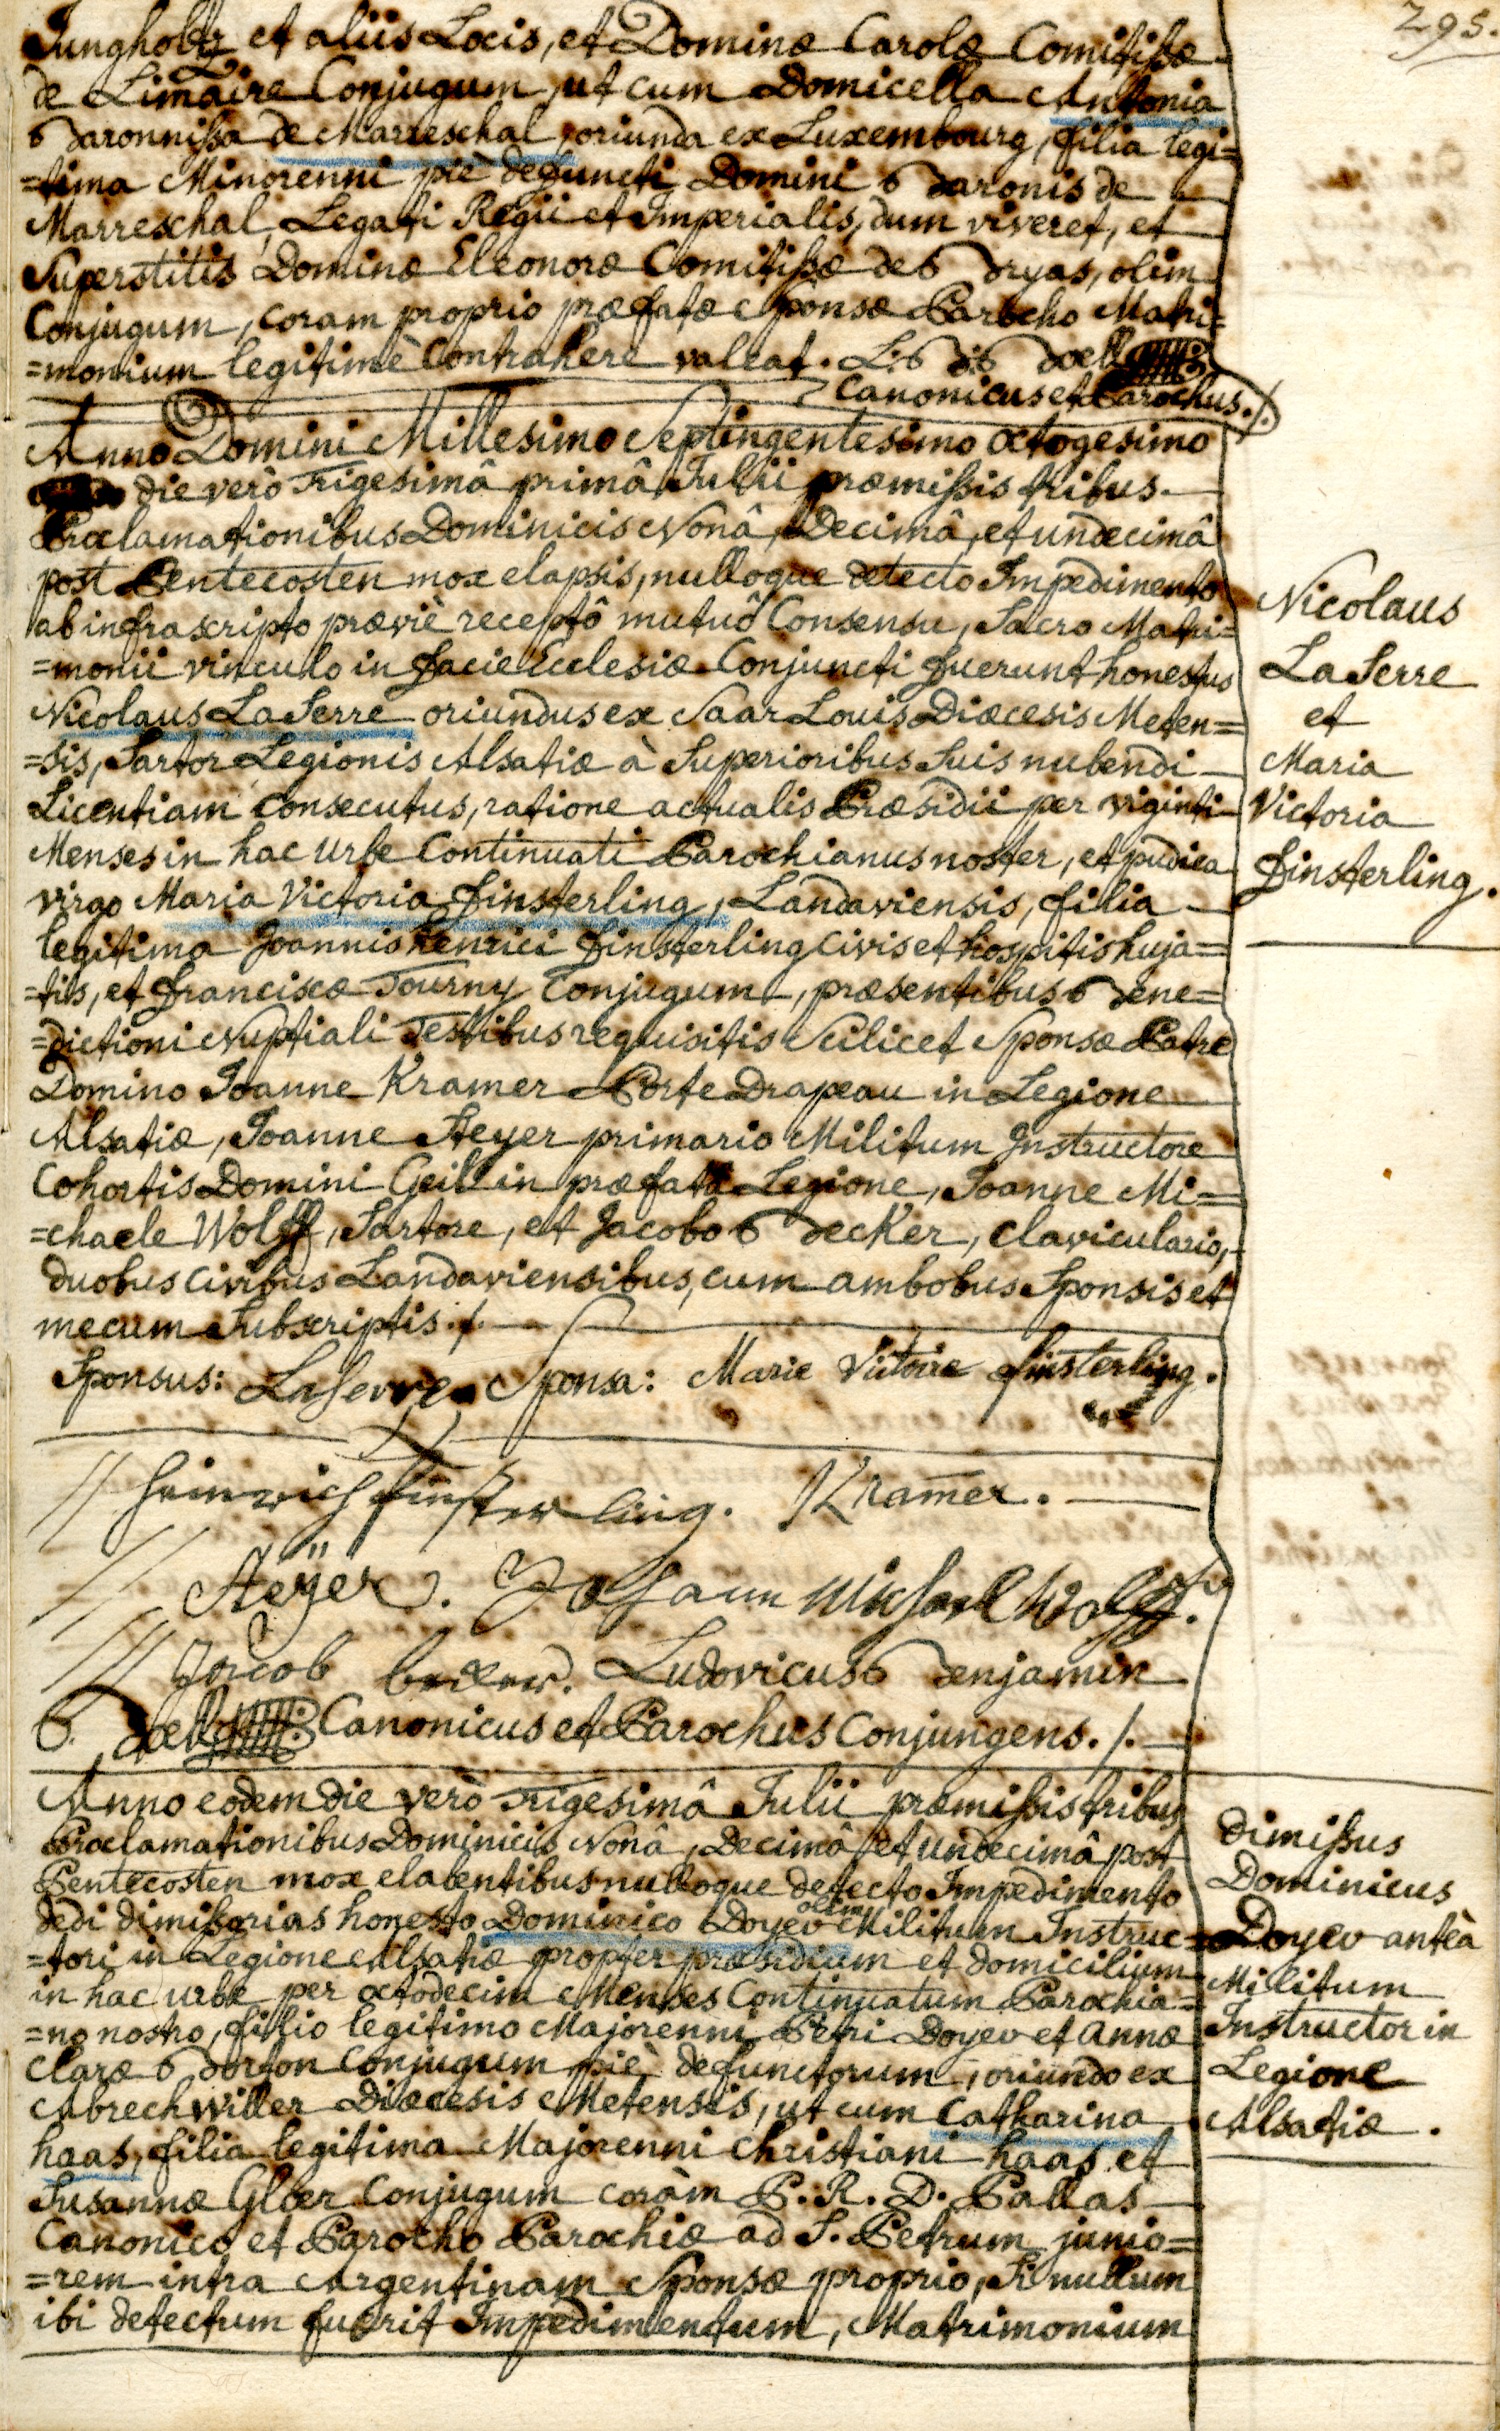 295.
Jungholtz et aliis Locis, et Dominæ Carolæ Comitissæ
de Limaire Conjugum, ut cum Domicella Antonia
Baronnissa de Marreschal, oriunda ex Luxembourg, filia legi=
=tima Minorenni piè defuncti Domini Baronis de
Marreschal, Legati Regii et Imperialis, dum viveret, et
Superstitis Dominæ Eleonoræ Comitissæ de Bryas, olim
Conjugum, coram proprio præfatæ Sponsæ Parocho Matri=
=monium legitimè Contrahere valeat. L: B: Boell
Canonicus et Parochus./.
Anno Domini Millesimo Septingentesimo octogesimo
die verò Trigesimâ primâ Julii præmissis tribus
Proclamationibus Dominicis Nonâ, Decimâ, et undecimâ
post Pentecosten mox elapsis, nullôque detecto Impedimento
ab infrascripto præviè receptô mutuô Consensu, Sacro Matri=
=monii vinculo in facie Ecclesiæ Conjuncti fuerunt honestus
Nicolaus LaSerre oriundus ex SaarLouis Diœcesis Meten=
=sis, Sartor Legionis Alsatiæ à Superioribus Suis nubendi
Licentiam consecutus, ratione actualis Præsidii per viginti
Menses in hac Urbe Continuati Parochianus noster, et pudica
virgo Maria Victoria Finsterling, Landaviensis, filia
legitima Joannis henrici Finsterling civis et hospitis huja=
=tis, et Franciscæ Tourny Conjugum, præsentibus Bene=
=dictioni Nuptiali Testibus requisitis Scilicet Sponsæ Patre
Domino Joanne Kramer Porte Drapeau in Legione
Alsatiæ, Joanne Steyer primario Militum Instructore
Cohortis Domini Geil in præfatâ Legione, Joanne Mi=
=chaele Wolff, Sartore, et Jacobo Becker, claviculario,
duobus civibus Landaviensibus, cum ambobus Sponsis et
mecum Subscriptis./.
Sponsus: LaSerre Sponsa: Marie Victoire finsterling.
Heinrich Finsterling. Kramer.
Steÿer. Johann Michael Wolff.
Jacob becker. Ludovicus Benjamin
Boell Canonicus et Parochus Conjungens./.
Nicolaus
LaSerre
et
Maria
Victoria
Finsterling.
Anno eodem die verò Trigesimâ Julii præmissis tribus
Proclamationibus Dominicis Nonâ, Decimâ et undecimâ post
Pentecosten mox elabentibus nulloque detecto Impedimento
dedi dimissorias honesto Dominico Doyev olim Militum Instruc=
=tori in Legione Alsatiæ propter præsidium et domicilium
in hac urbe per octodecim Menses Continuatum Parochia=
=no nostro, filio legitimo Majorenni Petri Doyev et Annæ
Claræ Borton Conjugum piè defunctorum, oriundo ex
Abrechwiller Diœcesis Metensis, ut cum Catharina
haas, filia legitima Majorenni Christiani haas et
Susannæ Glber Conjugum coràm P. R. D. Pallas
Canonico et Parocho Parochiæ ad S. Petrum junio=
=rem intra Argentinam Sponsæ proprio, Si nullum
ibi detectum fuerit Impedimentum, Matrimonium
dimissus
Dominicus
Doyev anteà
Militum
Instructor in
Legione
Alsatiæ.